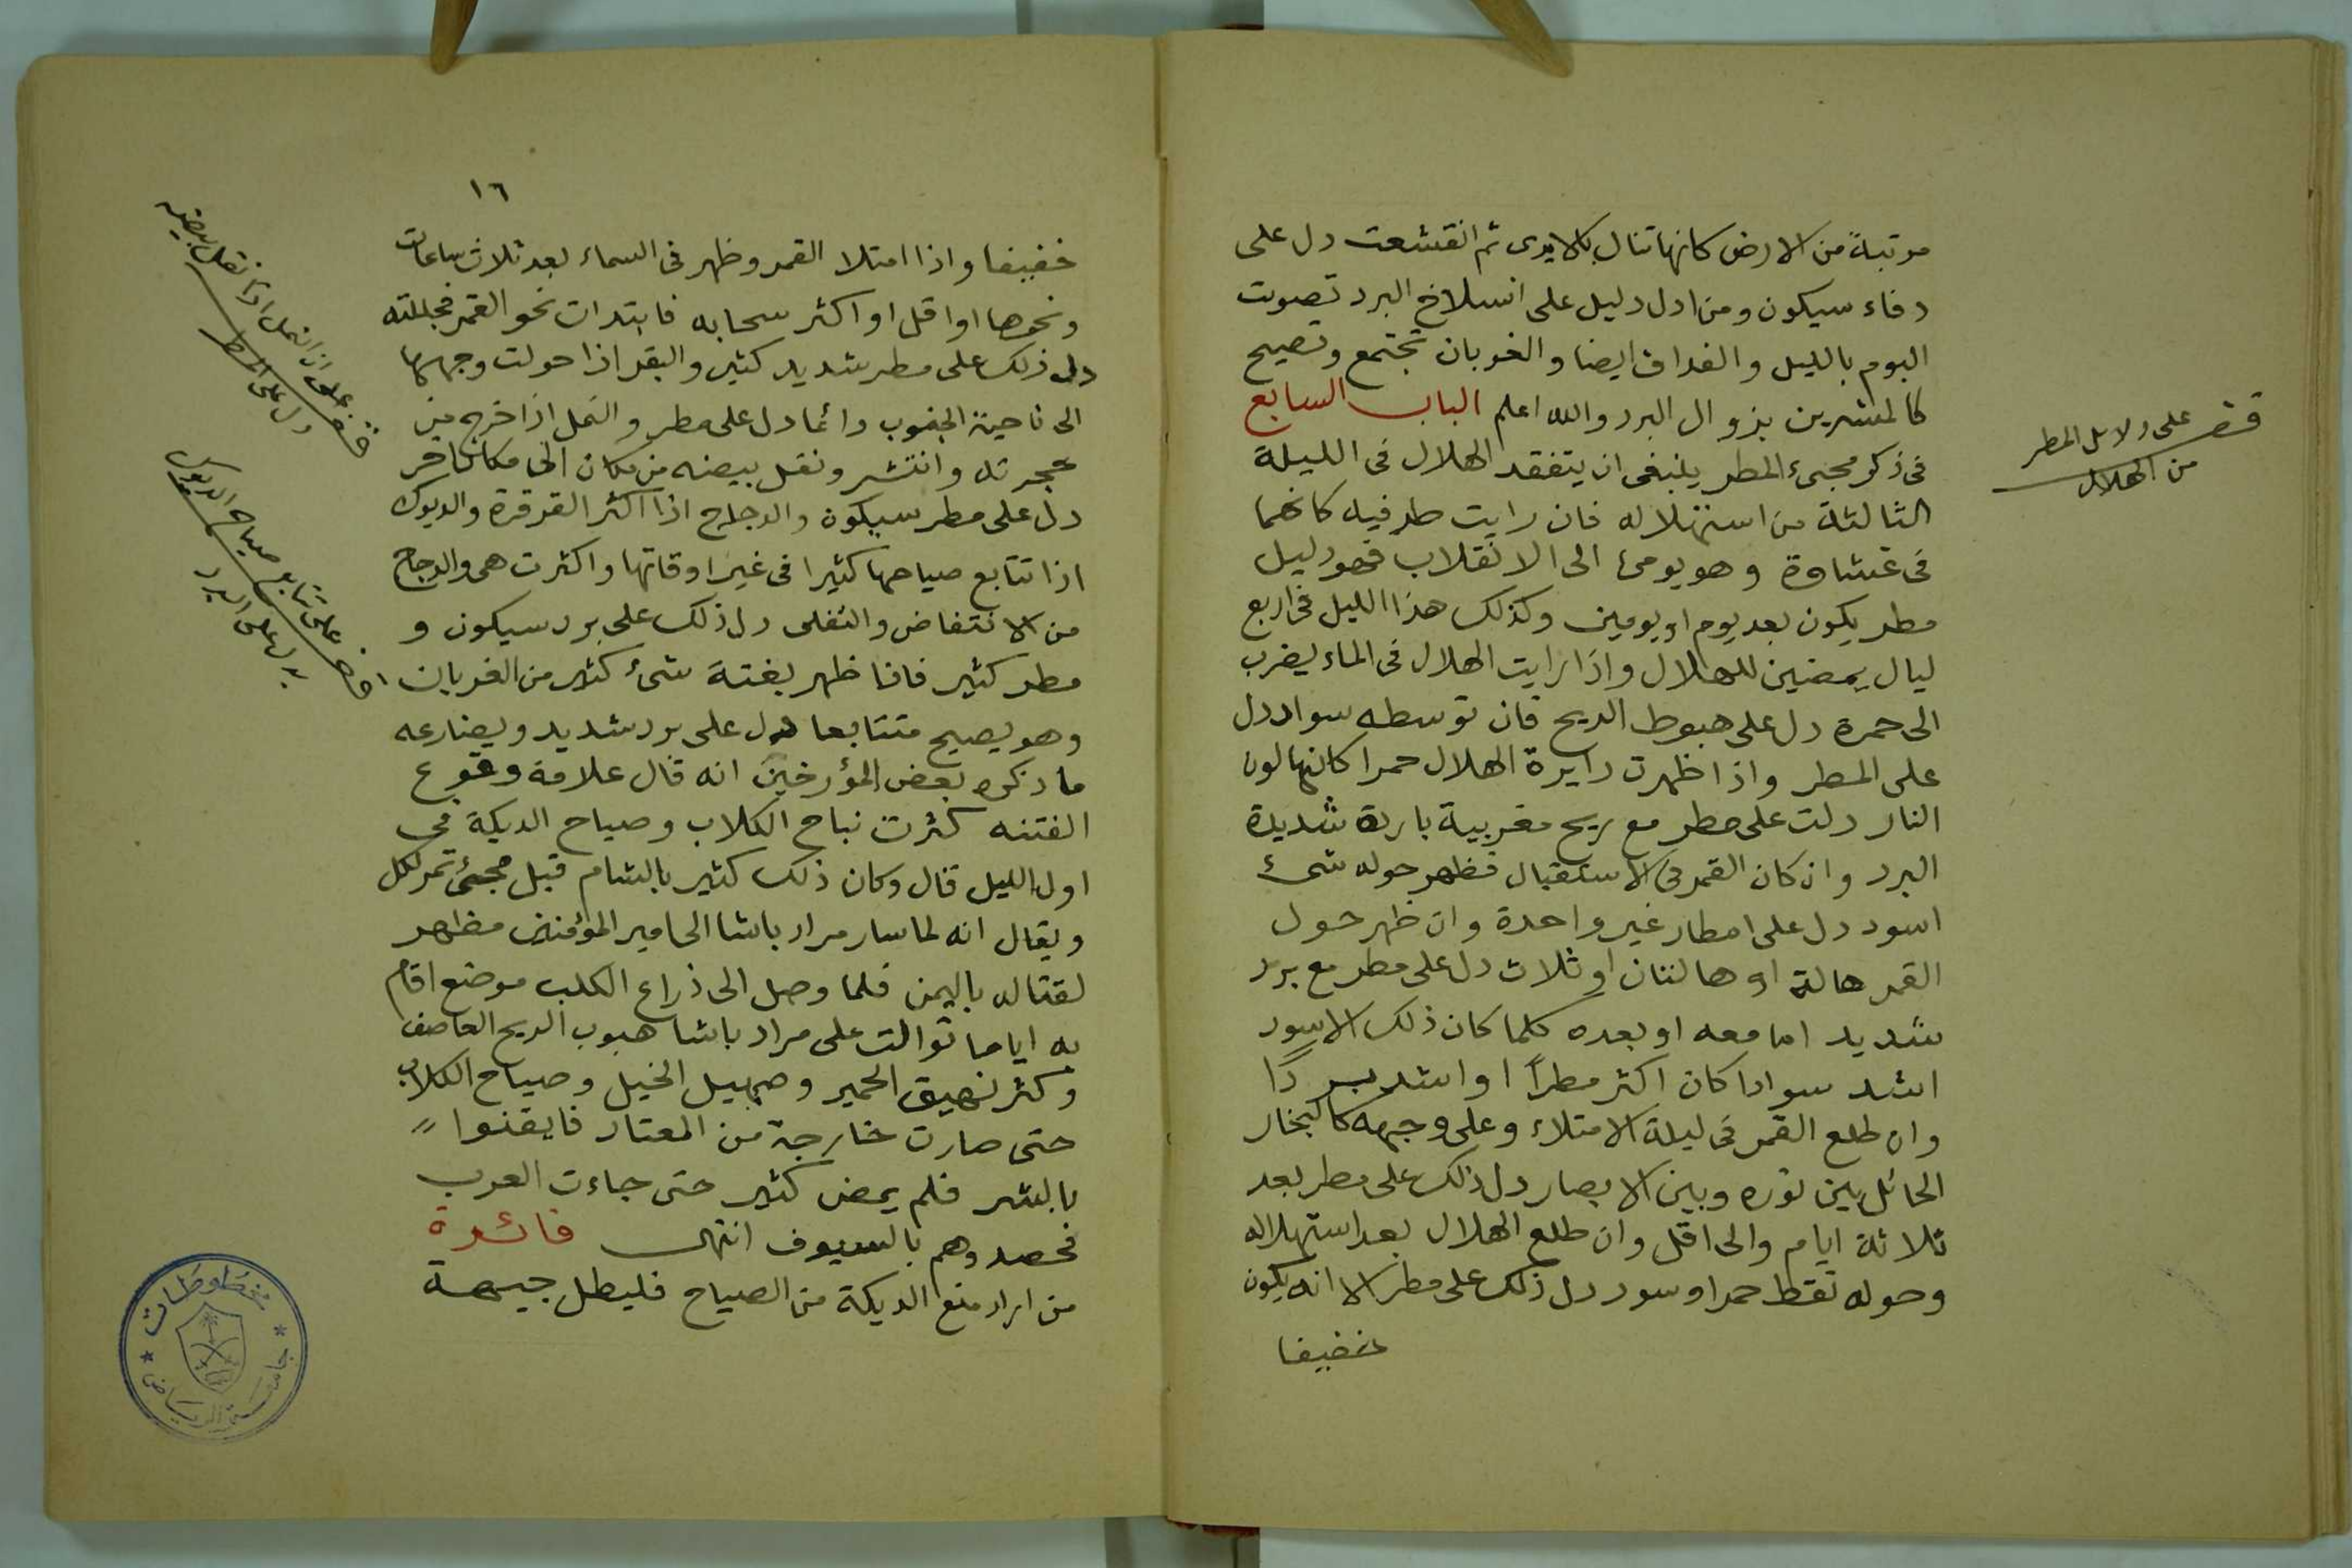 مرتبة من الارض كانها تنال بالايدى ثم انقشعت دل على
دفاء سيكون ومن ادل دليل على انسلاخ البرد تصويت
البوم بالليل والغداف ايضا والغربان تجتمع وتصيح
كالمبشرين بزوال البرد والله اعلم الباب السابع
فى ذكر مجىء المطر ينبغى ان يتفقد الهلال فى الليلة
الثالثة من استهلاله فان رايت طرفيه كانهما
فى غشاوة وهو يومئ الى الانقلاب فهو دليل
مطر يكون بعد يوم او يومين وكذلك هذا الليل فى اربع
ليال يمضين للهلال واذا رايت الهلال فى الماء يضرب
الى حمرة دل على هبوط الريح فان توسطه سواد دل
على المطر واذا ظهرت دايرة الهلال حمرا كانها لون
النار دلت على مطر مع ريح مغربية باردة شديدة
البرد وان كان القمر فى الاستقبال فظهر حوله شىء
اسود دل على امطار غير واحدة وان ظهر حول
القمر هالة او هالتان او ثلاث دل على مطر مع برد
شديد اما معه او بعده كلما كان ذلك الاسود
اشد سوادا كان اكثر مطراً او اشد بردًا
وان طلع القمر فى ليلة الامتلاء وعلى وجهه كالبخار
الحائل بين نوره وبين الابصار دل ذلك على مطر بعد
ثلاثة ايام والى اقل وان طلع الهلال بعد استهلاله
وحوله نقط حمر او سود دل ذلك على مطر الا انه يكون
خفيفا
قف على دلايل المطر
من الهلال
١٦
خفيفا واذا امتلا القمر وظهر فى السماء بعد ثلاث ساعات
ونحوها او اقل او اكثر سحابه فابتدات نحو القمر فجللته
دل ذلك على مطر شديد كثير والبقر اذا حولت وجهها
الى ناحية الجنوب دائما دل على مطر والنمل اذا خرج من
حجرته وانتشر ونقل بيضه من مكان الى مكان اخر
دل على مطر سيكون والدجاج اذا اكثر القرقرة والديوك
اذا تتابع صياحها كثيرا فى غير اوقاتها واكثرت هى والدجاج
من الانتفاض والتفلى دل ذلك على برد سيكون و
مطر كثير فاذا ظهر بغتة شىء كثير من الغربان
وهو يصيح متتابعا دل على برد شديد ويضارعه
ما ذكره بعض المؤرخين انه قال علامة وقوع
الفتنه كثرت نباح الكلاب وصياح الديكة فى
اول الليل قال وكان ذلك كثير بالشام قبل مجئ تمرلكك
ويقال انه لما سار مراد باشا الى امير المؤمنين مظهر
لقتاله باليمن فلما وصل الى ذراع الكلب موضع اقام
به اياما توالت على مراد باشا هبوب الريح العاصف
وكثر نهيق الحمير وصهيل الخيل وصياح الكلاب
حتى صارت خارجة من المعتاد فايقنوا
بالشر فلم يمض كثير حتى جاءت العرب
فحصدوهم بالسيوف انتهى فائدة
من اراد منع الديكة من الصياح فليطل جبهة
قف على ان النمل اذا نقل بيضه
دل على المطر
قف على تتابع صياح الديوك
يدل على البرد
مخطوطات
جامعة الرياض